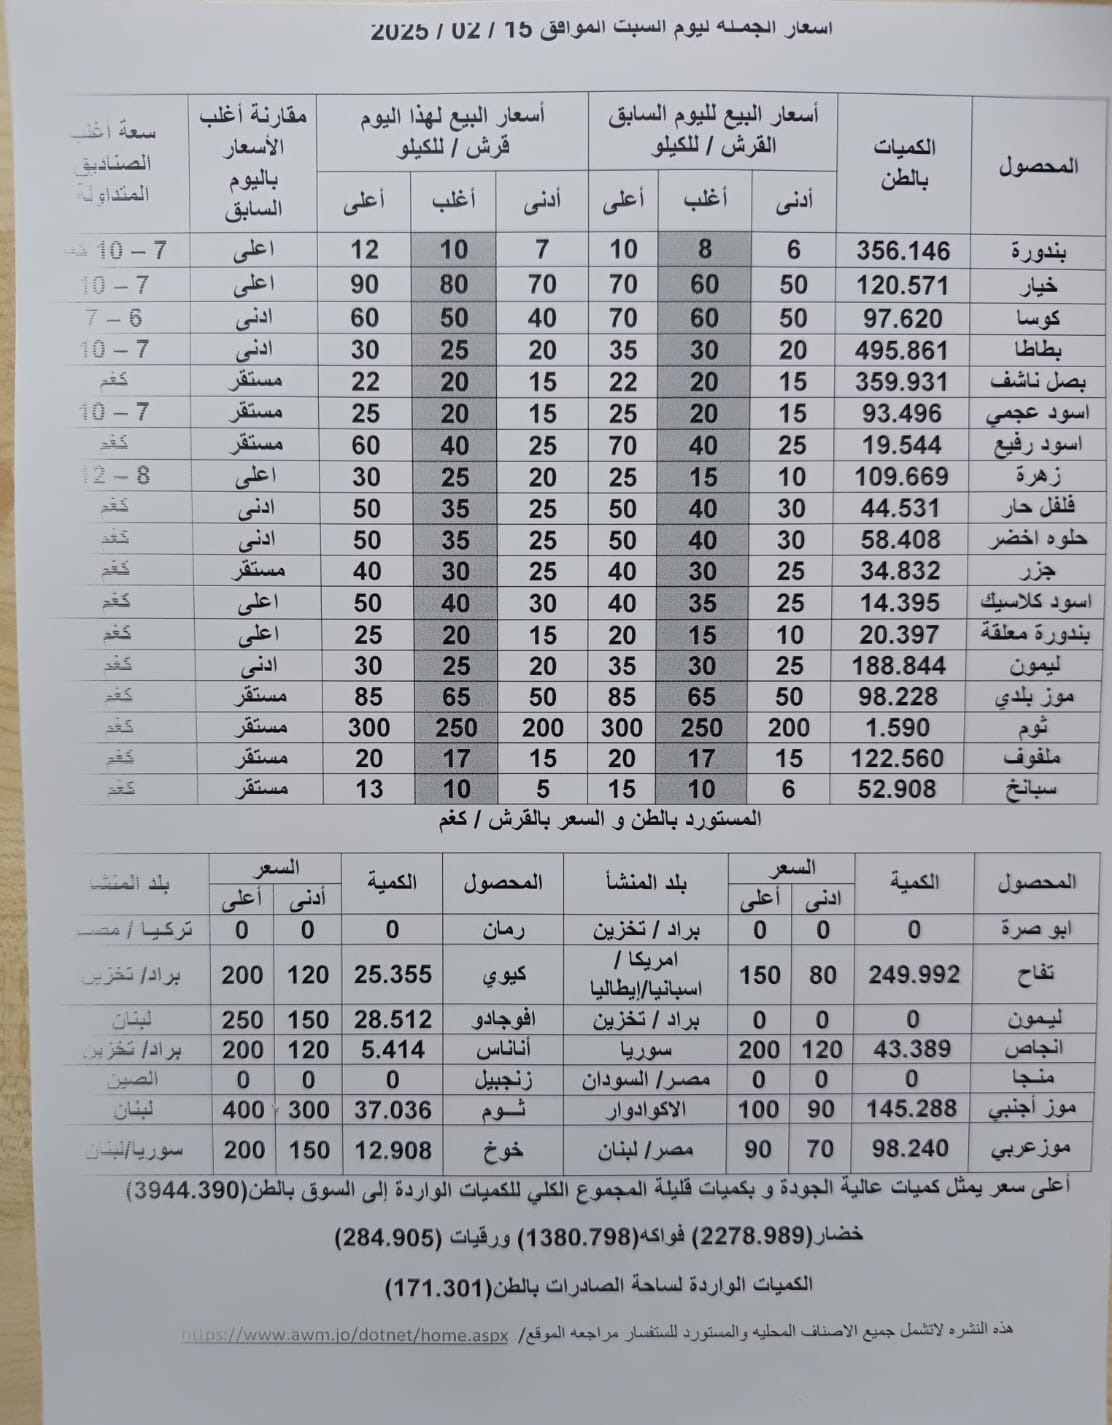 اسعار الجملة ليوم السبت الموافق 15 / 02 / 2025
المحصول الكميات بالطن أسعار البيع لليوم السابق القرش / للكيلو أسعار البيع لهذا اليوم قرش / للكيلو مقارنة أغلب الأسعار باليوم السابق سعة أغلب الصناديق المتداولة
أدنى أغلب أعلى أدنى أغلب أعلى
بندورة 356.146 6 8 10 7 10 12 اعلى 7 – 10
خيار 120.571 50 60 70 70 80 90 اعلى 7 – 10
كوسا 97.620 50 60 70 40 50 60 ادنى 6 – 7
بطاطا 495.861 20 30 35 20 25 30 ادنى 7 – 10
بصل ناشف 359.931 15 20 22 15 20 22 مستقر كغم
اسود عجمي 93.496 15 20 25 15 20 25 مستقر 7 – 10
اسود رفيع 19.544 25 40 70 25 40 60 مستقر كغم
زهرة 109.669 10 15 25 20 25 30 اعلى 8 – 12
فلفل حار 44.531 30 40 50 25 35 50 ادنى كغم
حلوه اخضر 58.408 30 40 50 25 35 50 ادنى كغم
جزر 34.832 25 30 40 25 30 40 مستقر كغم
اسود كلاسيك 14.395 25 35 40 30 40 50 اعلى كغم
بندورة معلقة 20.397 10 15 20 15 20 25 اعلى كغم
ليمون 188.844 25 30 35 20 25 30 ادنى كغم
موز بلدي 98.228 50 65 85 50 65 85 مستقر كغم
ثوم 1.590 200 250 300 200 250 300 مستقر كغم
ملفوف 122.560 15 17 20 15 17 20 مستقر كغم
سبانخ 52.908 6 10 15 5 10 13 مستقر كغم
المستورد بالطن و السعر بالقرش / كغم
المحصول الكمية السعر بلد المنشأ المحصول الكمية السعر بلد المنشأ
ادنى أعلى أدنى أعلى
ابو صرة 0 0 0 براد / تخزين رمان 0 0 0 تركيا / مصر
تفاح 249.992 80 150 امريكا / اسبانيا/إيطاليا كيوي 25.355 120 200 براد/ تخزين
ليمون 0 0 0 براد / تخزين افوجادو 28.512 150 250 لبنان
انجاص 43.389 120 200 سوريا أناناس 5.414 120 200 براد/ تخزين
منجا 0 0 0 مصر/ السودان زنجبيل 0 0 0 الصين
موز أجنبي 145.288 90 100 الاكوادوار ثـوم 37.036 300 400 لبنان
موز عربي 98.240 70 90 مصر/ لبنان خوخ 12.908 150 200 سوريا/لبنان
أعلى سعر يمثل كميات عالية الجودة و بكميات قليلة المجموع الكلي للكميات الواردة إلى السوق بالطن(3944.390)
خضار(2278.989) فواكه(1380.798) ورقيات (284.905)
الكميات الواردة لساحة الصادرات بالطن(171.301)
هذه النشره لاتشمل جميع الاصناف المحليه والمستورد للستفسار مراجعه الموقع/ https://www.awm.jo/dotnet/home.aspx